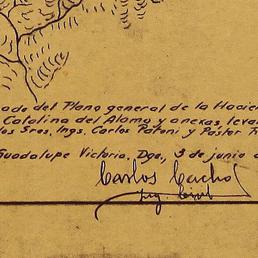 ado del Plano general de la Hacien
Catalina del Alamo y anexas, leva
los Sres. Ings. Carlos Patoni y Pastor R
Guadalupe Victoria, Dgo., 3 de junio d
Carlos Cacho
Ing Civil